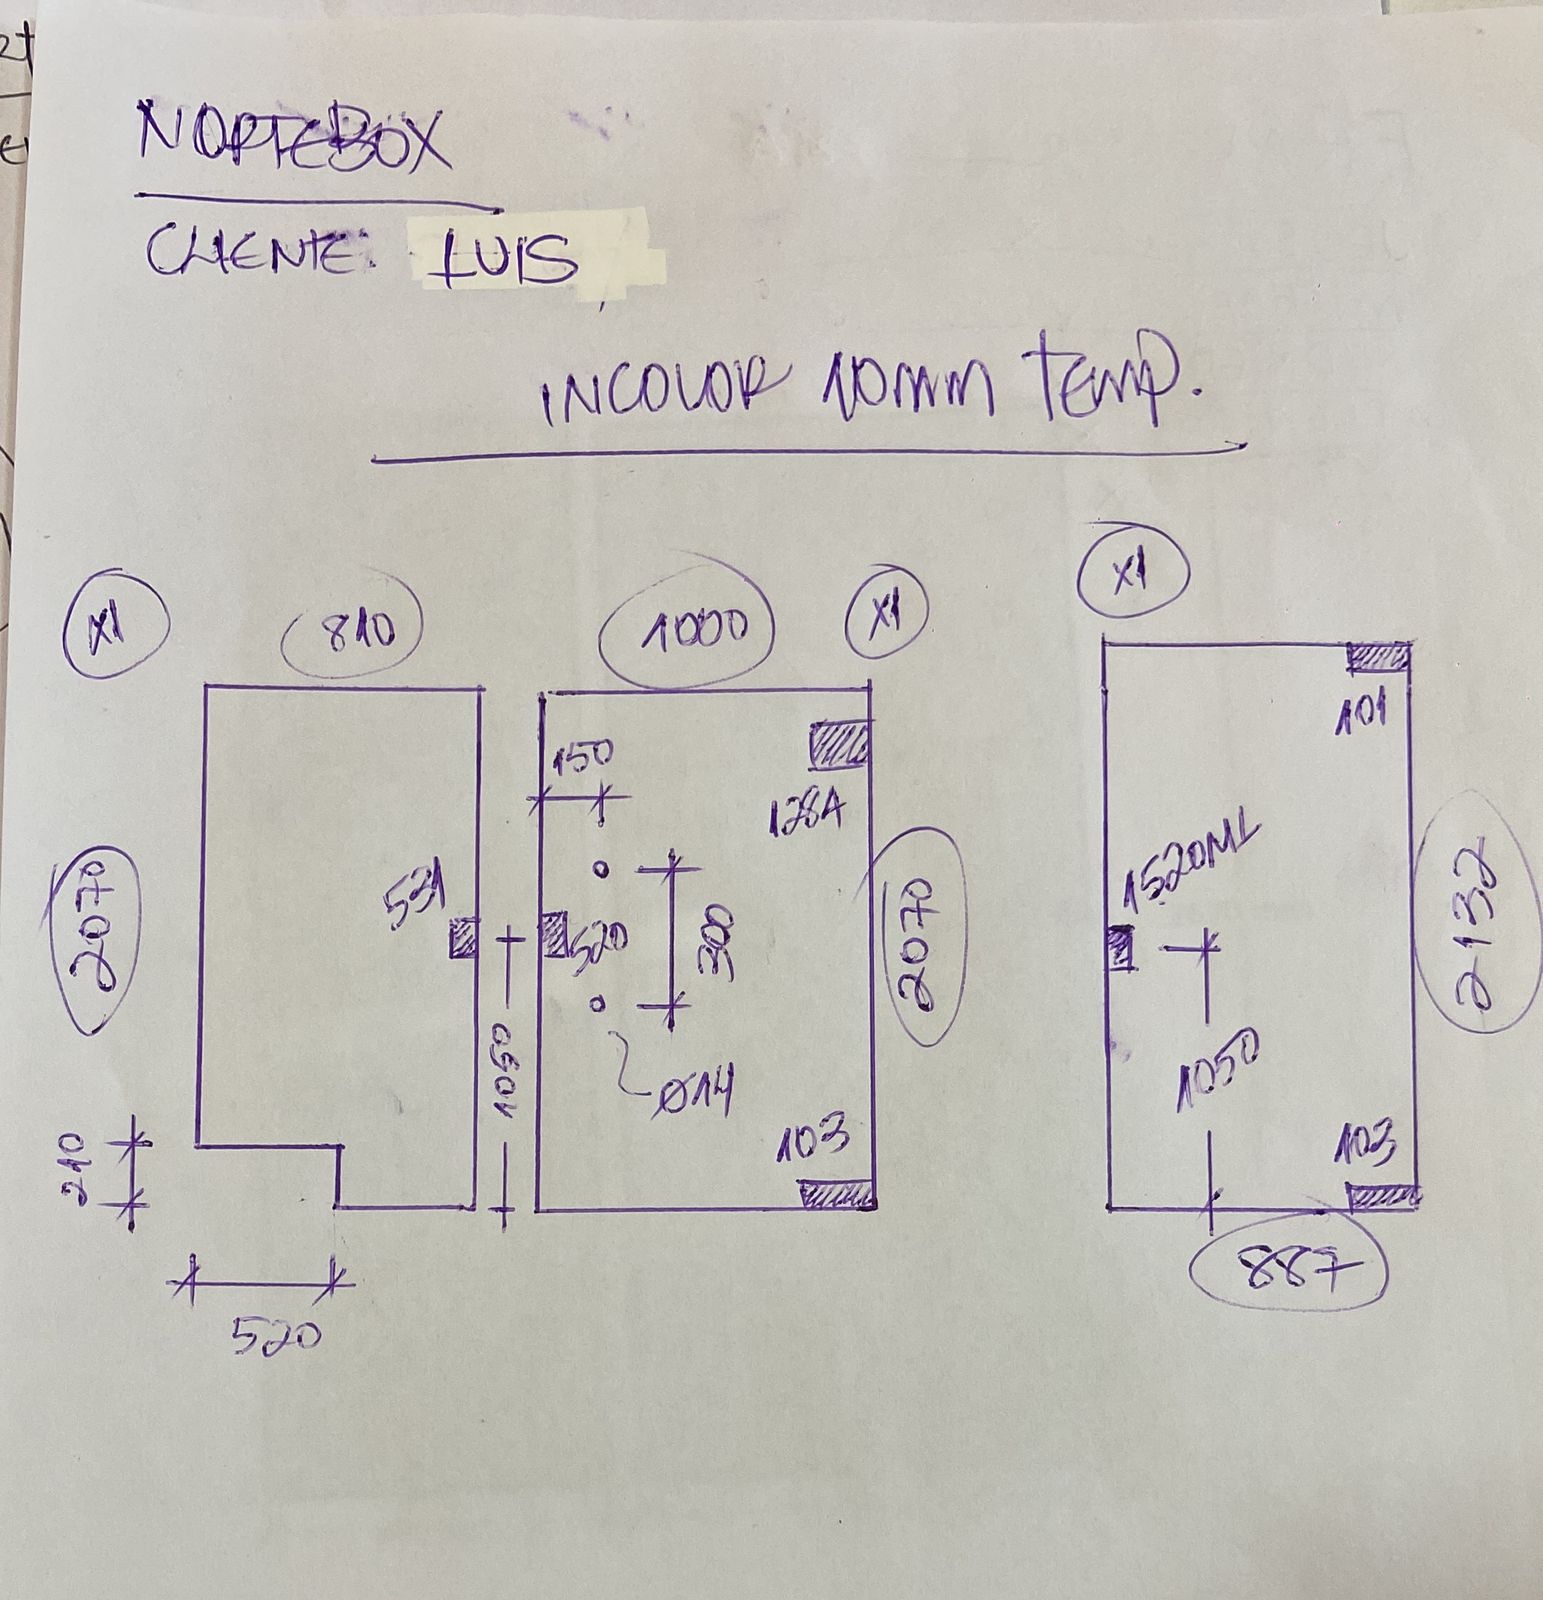 NORTEBOX
CLIENTE: LUIS
INCOLOR 10mm TEMP.
X1
810
1000
X1
X1
101
150
128A
2070
531
520
300
2070
1520ML
2132
1050
Ø14
1050
210
103
103
520
887